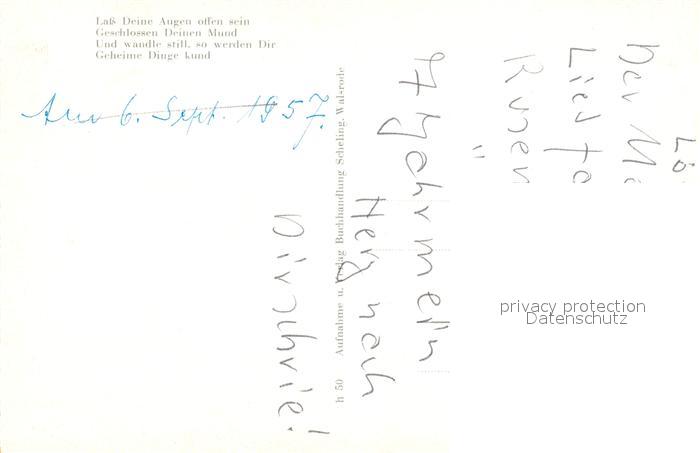 Laß Deine Augen offen sein
Geschlossen Deinen Mund
Und wandle still, so werden Dir
Geheime Dinge kund
Am 6. Sept. 1957.
h 50 Aufnahme u. Verlag Buchhandlung Scheling, Walsrode
7 Jahr mein
Herz nach
Dir schrie!
Lö
Der
Lied
Runen
privacy protection
Datenschutz